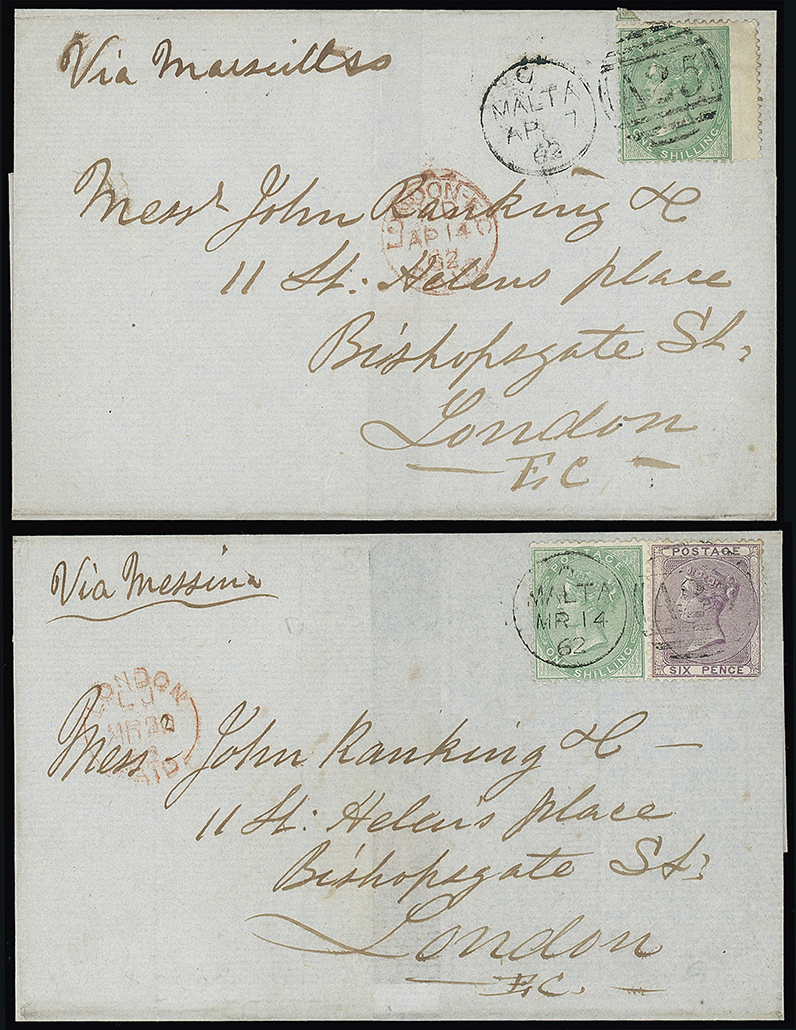 Via Marseilles
C
MALTA
AP 7
62
A25
ONE SHILLING
LONDON
AP 14
62
Messrs John Ranking & Co
11 St. Helens place
Bishopsgate St.
London
E.C
Via Messina
POSTAGE
ONE SHILLING
MALTA
MR 14
62
POSTAGE
SIX PENCE
LONDON
MR 22
PAID
Mess John Ranking & Co
11 St: Helen's place
Bishopsgate St:
London
E.C.